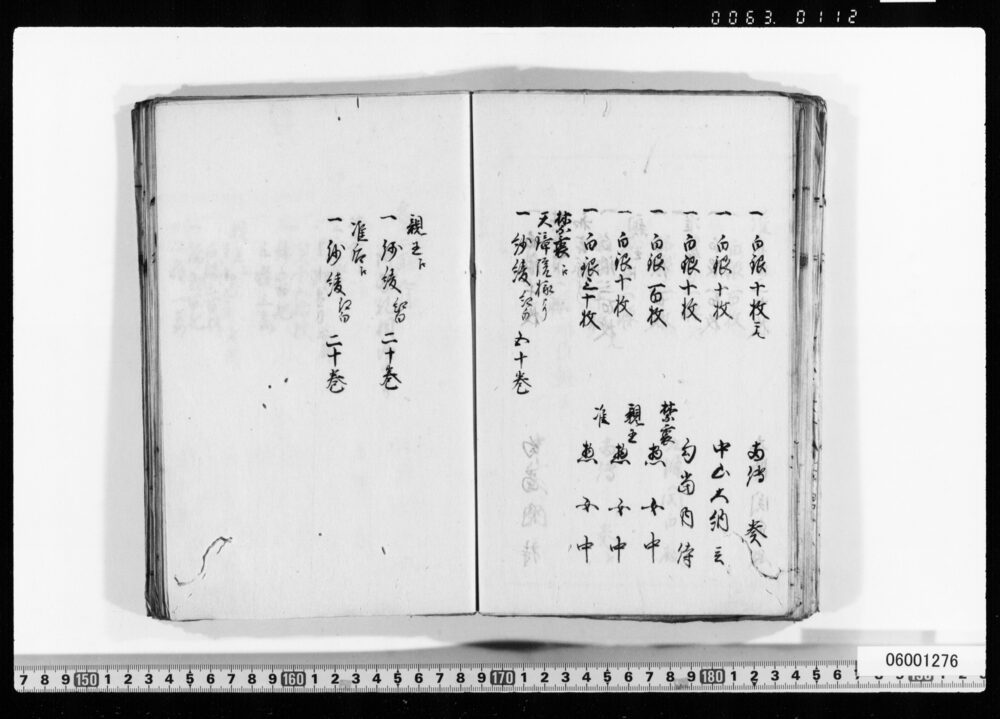 0063. 0112
一 白銀十枚ツヽ 両伝奏
一 白銀十枚 中山大納言
一 白銀十枚 勾当内侍
禁裏
一 白銀百枚 惣女中
親王
一 白銀十枚 惣女中
准
一 白銀三十枚 惣女中
禁裏に
一 紗綾紅白 五十巻
親王に
一 紗綾紅白 二十巻
准后に
一 紗綾紅白 二十巻
06001276
7 8 9 150 1 2 3 4 5 6 7 8 9 160 1 2 3 4 5 6 7 8 9 170 1 2 3 4 5 6 7 8 9 180 1 2 3 4 5 6